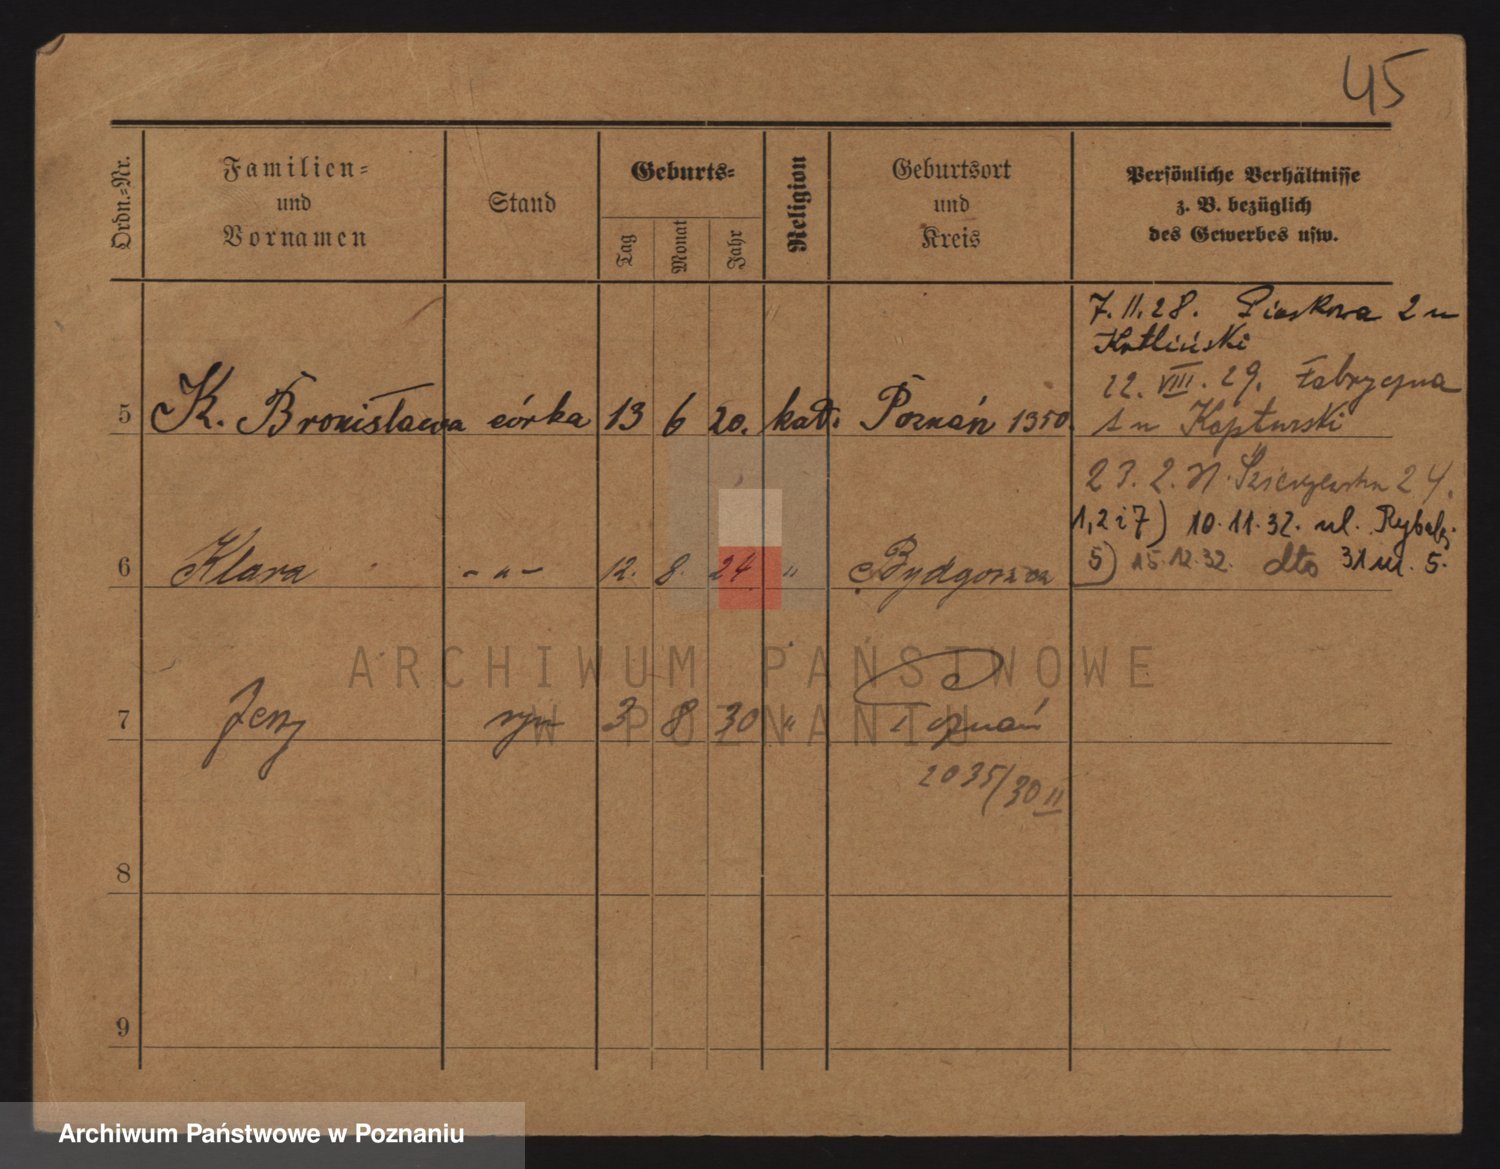 45
Ordn.=Nr.
Familien=
und
Vornamen
Stand
Geburts=
Tag
Monat
Jahr
Religion
Geburtsort
und
Kreis
Persönliche Verhältnisse
z. B. bezüglich
des Gewerbes usw.
7. 11. 28. Piaskowa 2 u
Kotliński
22. VIII. 29. Fabryczna
5 K. Bronisława córka 13 6 20. kat. Poznań 1350.
1 u Kapturski
23. 2. 31. 24.
1, 2 i 7) 10. 11. 32. ul. Rybaki
6 Klara - " - 12. 8. 24 " Bydgoszcz
5) 15. 12. 32. dto 31 m. 5.
7 Jerzy syn 3 8 30 " Poznań
2035/30 II
8
9
ARCHIWUM PAŃSTWOWE
W POZNANIU
Archiwum Państwowe w Poznaniu